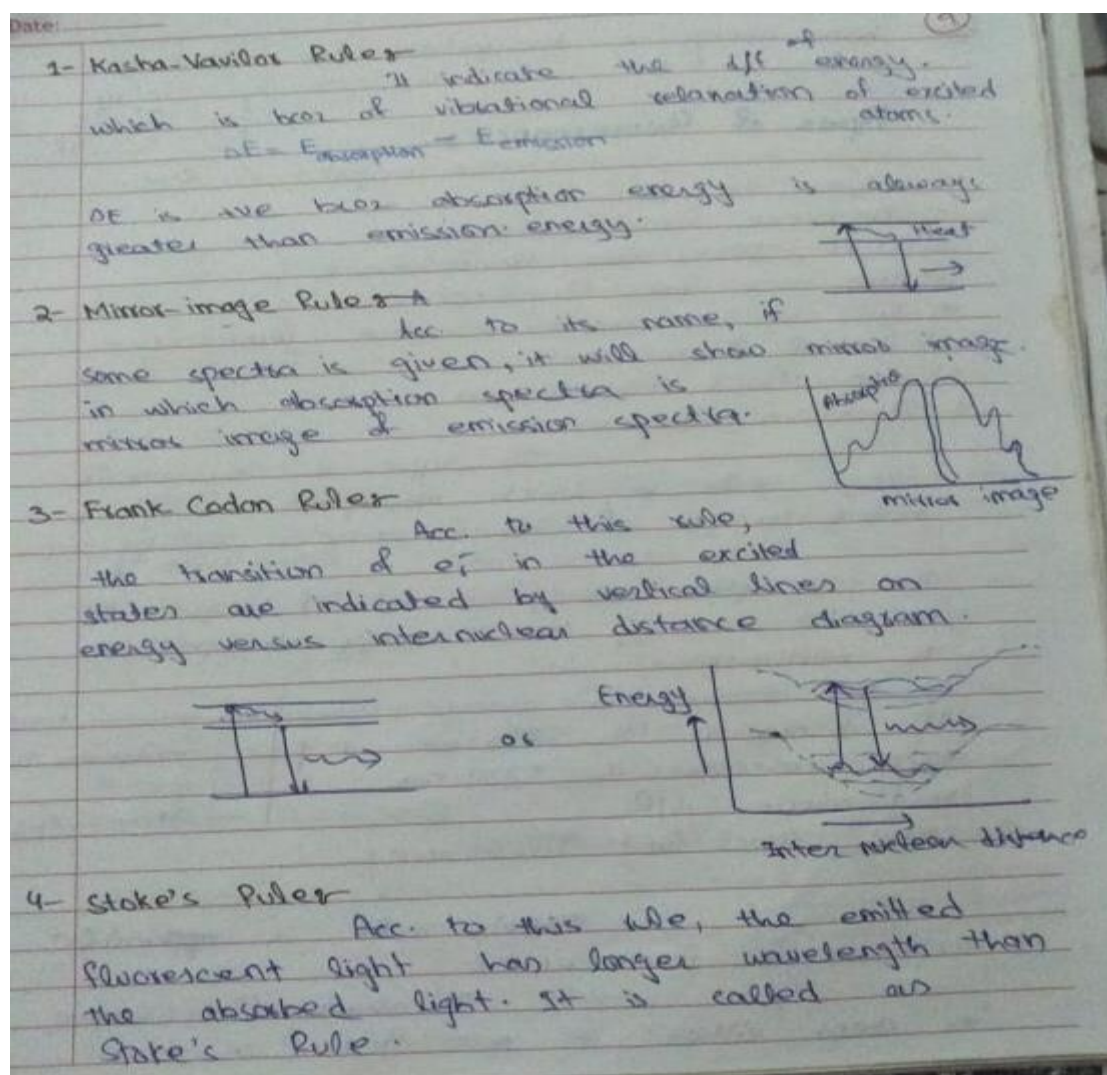 Date:
9
1- Kasha-Vavilov Rule:-
It indicate the diff of energy.
which is bcoz of vibrational relaxation of excited
atoms.
ΔE = Eabsorption - Eemission
ΔE is +ve bcoz absorption energy is always
greater than emission energy.
Heat
2- Mirror-image Rule:-
Acc. to its name, if
some spectra is given, it will show mirror image.
in which absorption spectra is
mirror image of emission spectra.
Absorptio
mirror image
3- Frank Codon Rule:-
Acc. to this rule,
the transition of e⁻ in the excited
states are indicated by vertical lines on
energy versus internuclear distance diagram.
Energy
or
Inter nuclear distance
4- Stoke's Rule:-
Acc. to this rule, the emitted
fluorescent light has longer wavelength than
the absorbed light. It is called as
Stoke's Rule.